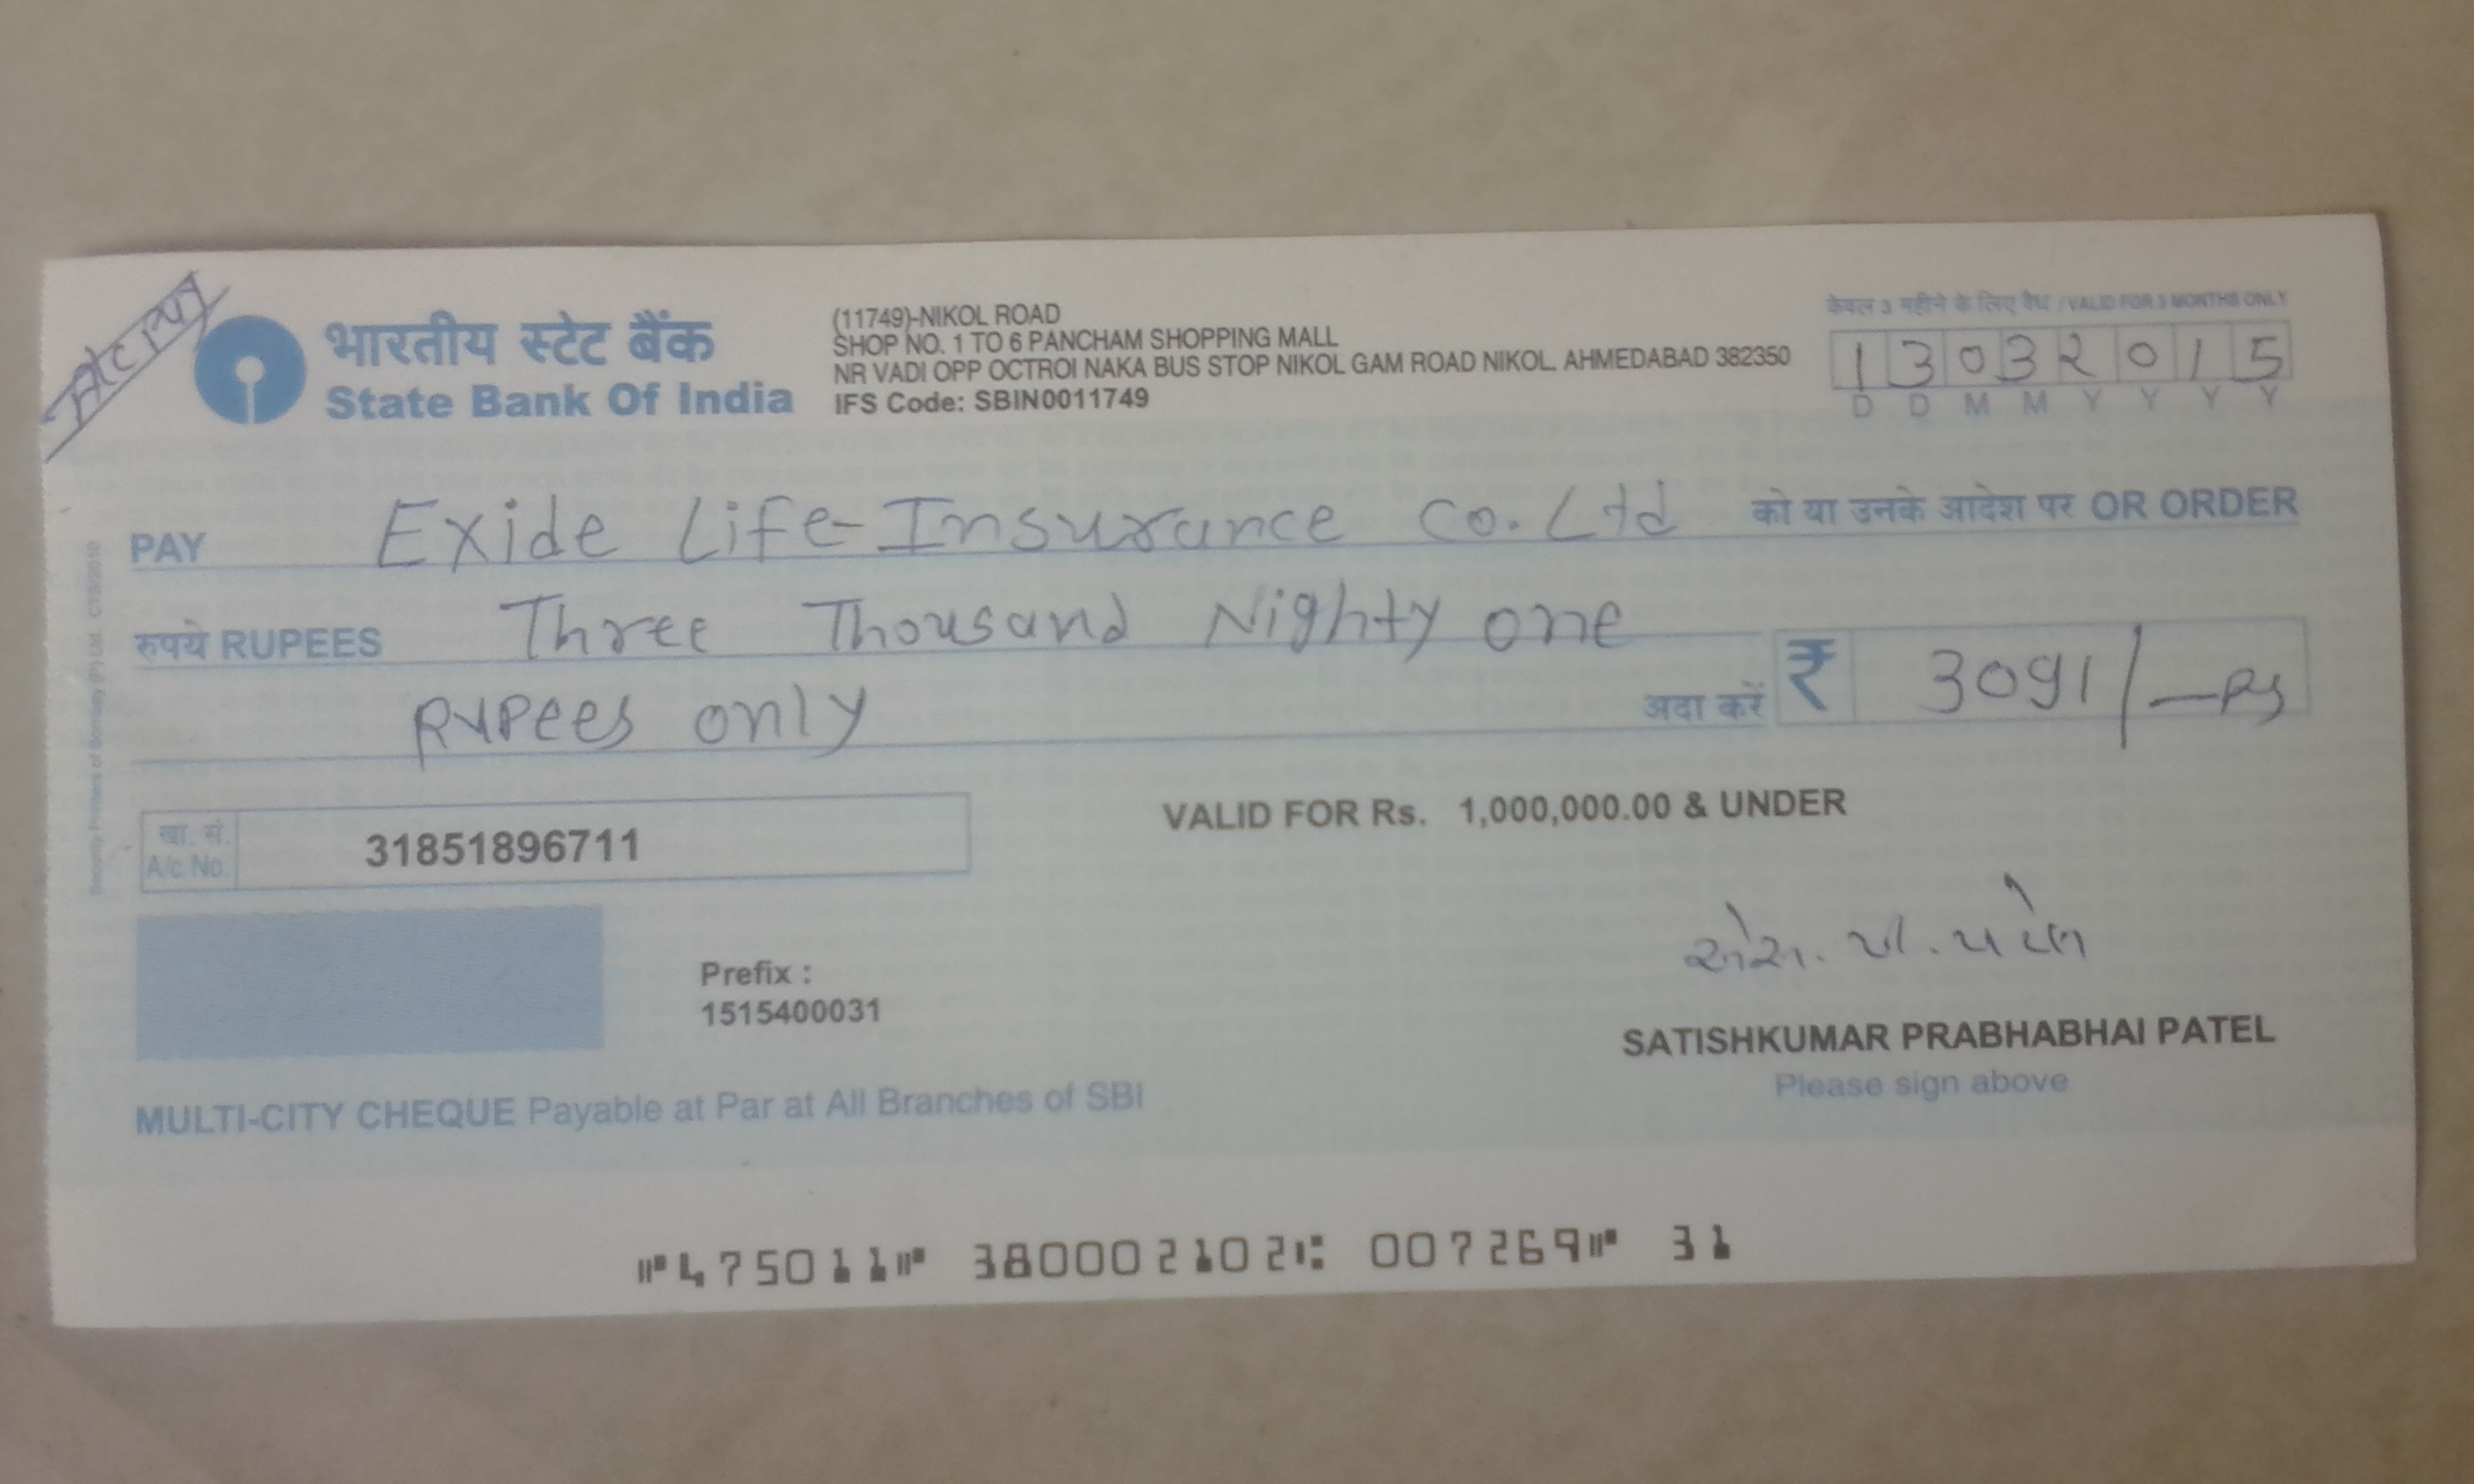 A/c Pay
भारतीय स्टेट बैंक
State Bank Of India
(11749)-NIKOL ROAD
SHOP NO. 1 TO 6 PANCHAM SHOPPING MALL
NR VADI OPP OCTROI NAKA BUS STOP NIKOL GAM ROAD NIKOL, AHMEDABAD 382350
IFS Code: SBIN0011749
केवल 3 महीने के लिए वैध / VALID FOR 3 MONTHS ONLY
1 3 0 3 2 0 1 5
D D M M Y Y Y Y
PAY Exide Life Insurance Co. Ltd को या उनके आदेश पर OR ORDER
रुपये RUPEES Three Thousand Nighty one
Rupees only अदा करें ₹ 3091/—Ps
खा. सं.
A/c No. 31851896711
VALID FOR Rs. 1,000,000.00 & UNDER
Prefix :
1515400031
એસ. પી. પટેલ
SATISHKUMAR PRABHABHAI PATEL
Please sign above
MULTI-CITY CHEQUE Payable at Par at All Branches of SBI
⑈475011⑈ 380002102⑆ 007269⑈ 31